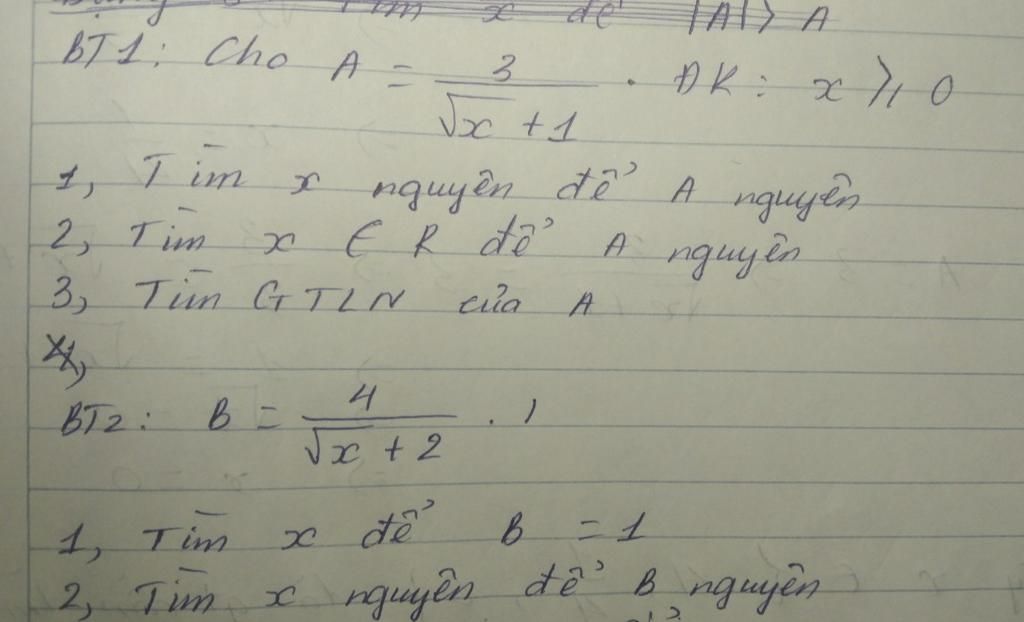 Tìm x để |A| > A
BT1: Cho A = 3 / (√x + 1) . ĐK: x ≥ 0
1, Tìm x nguyên để A nguyên
2, Tìm x ∈ R để A nguyên
3, Tìm GTLN của A
BT2: B = 4 / (√x + 2) .
1, Tìm x để B = 1
2, Tìm x nguyên để B nguyên